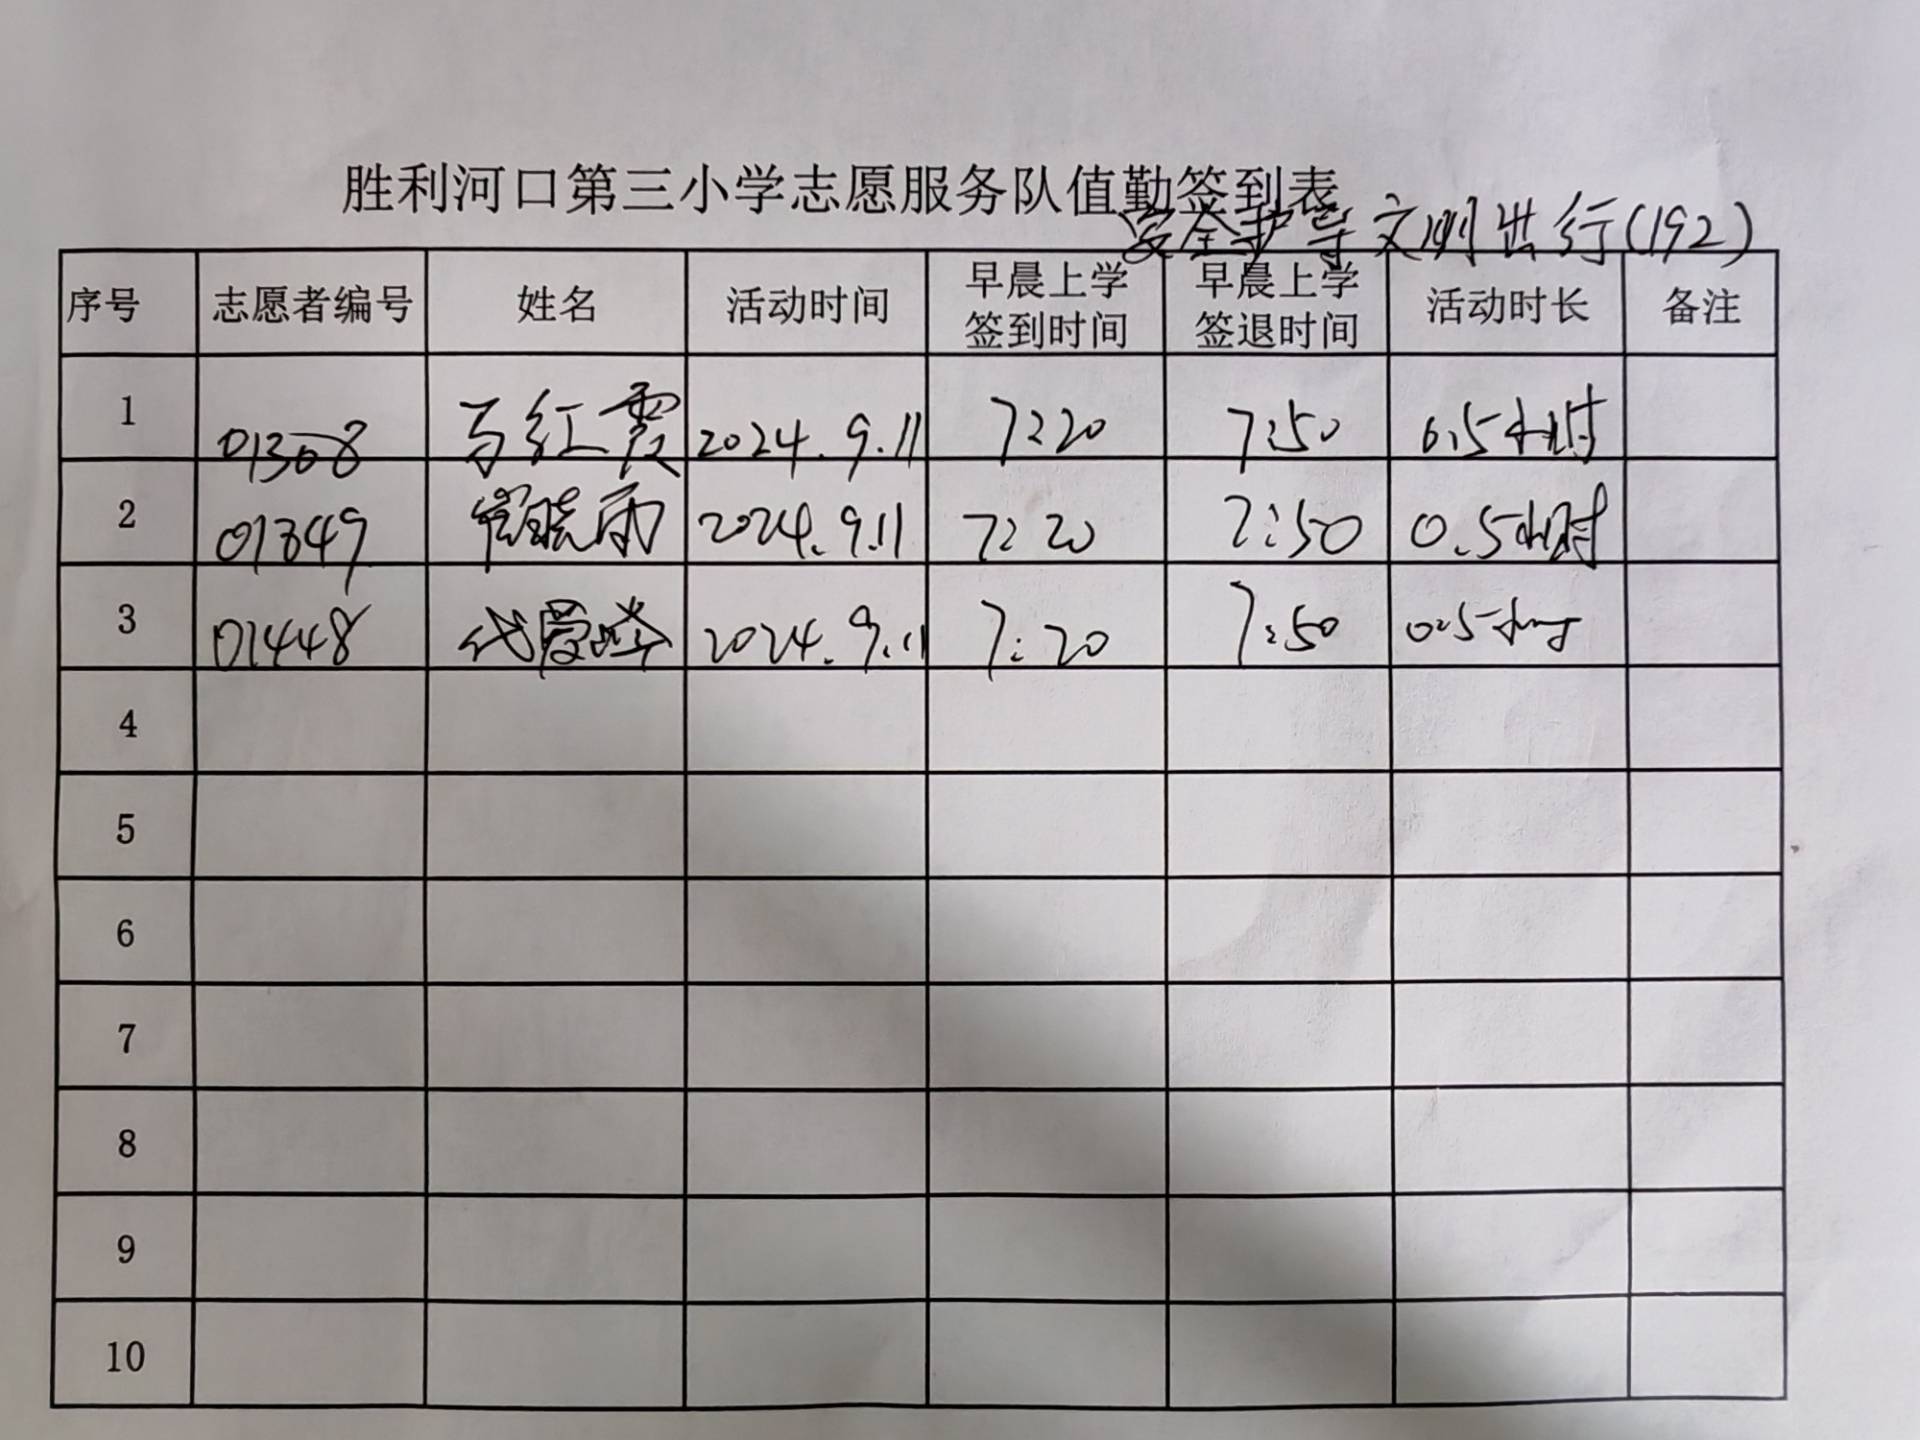 胜利河口第三小学志愿服务队值勤签到表
安全护导 文明出行(192)
序号 志愿者编号 姓名 活动时间 早晨上学签到时间 早晨上学签退时间 活动时长 备注
1 01308 马红霞 2024.9.11 7:20 7:50 0.5小时
2 01349 崔晓雨 2024.9.11 7:20 7:50 0.5小时
3 01448 代爱峰 2024.9.11 7:20 7:50 0.5小时
4
5
6
7
8
9
10